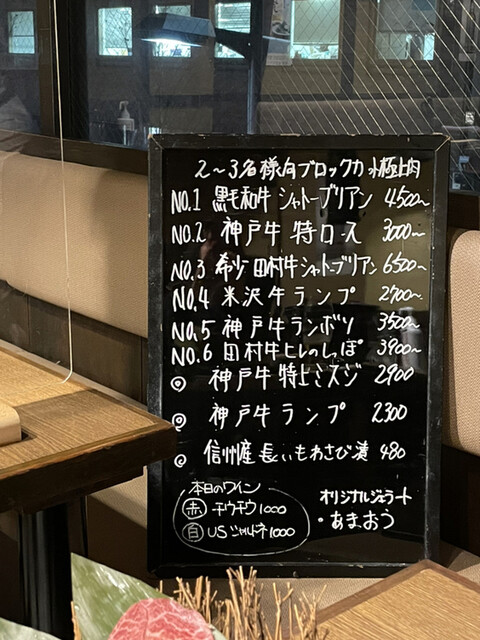 2〜3名様向ブロックカット極上肉
NO.1 黒毛和牛 シャトーブリアン 4500〜
NO.2 神戸牛 特ロース 3000〜
NO.3 希少 田村牛シャトーブリアン 6500〜
NO.4 米沢牛ランプ 2700〜
NO.5 神戸牛ランボソ 3500〜
NO.6 田村牛ヒレのしっぽ 3900〜
◎ 神戸牛 特上ミスジ 2900
◎ 神戸牛ランプ 2300
◎ 信州産 長いもわさび漬 480
本日のワイン
赤 チウチウ 1000
白 US シャルドネ 1000
オリジナルジェラート
・あまおう